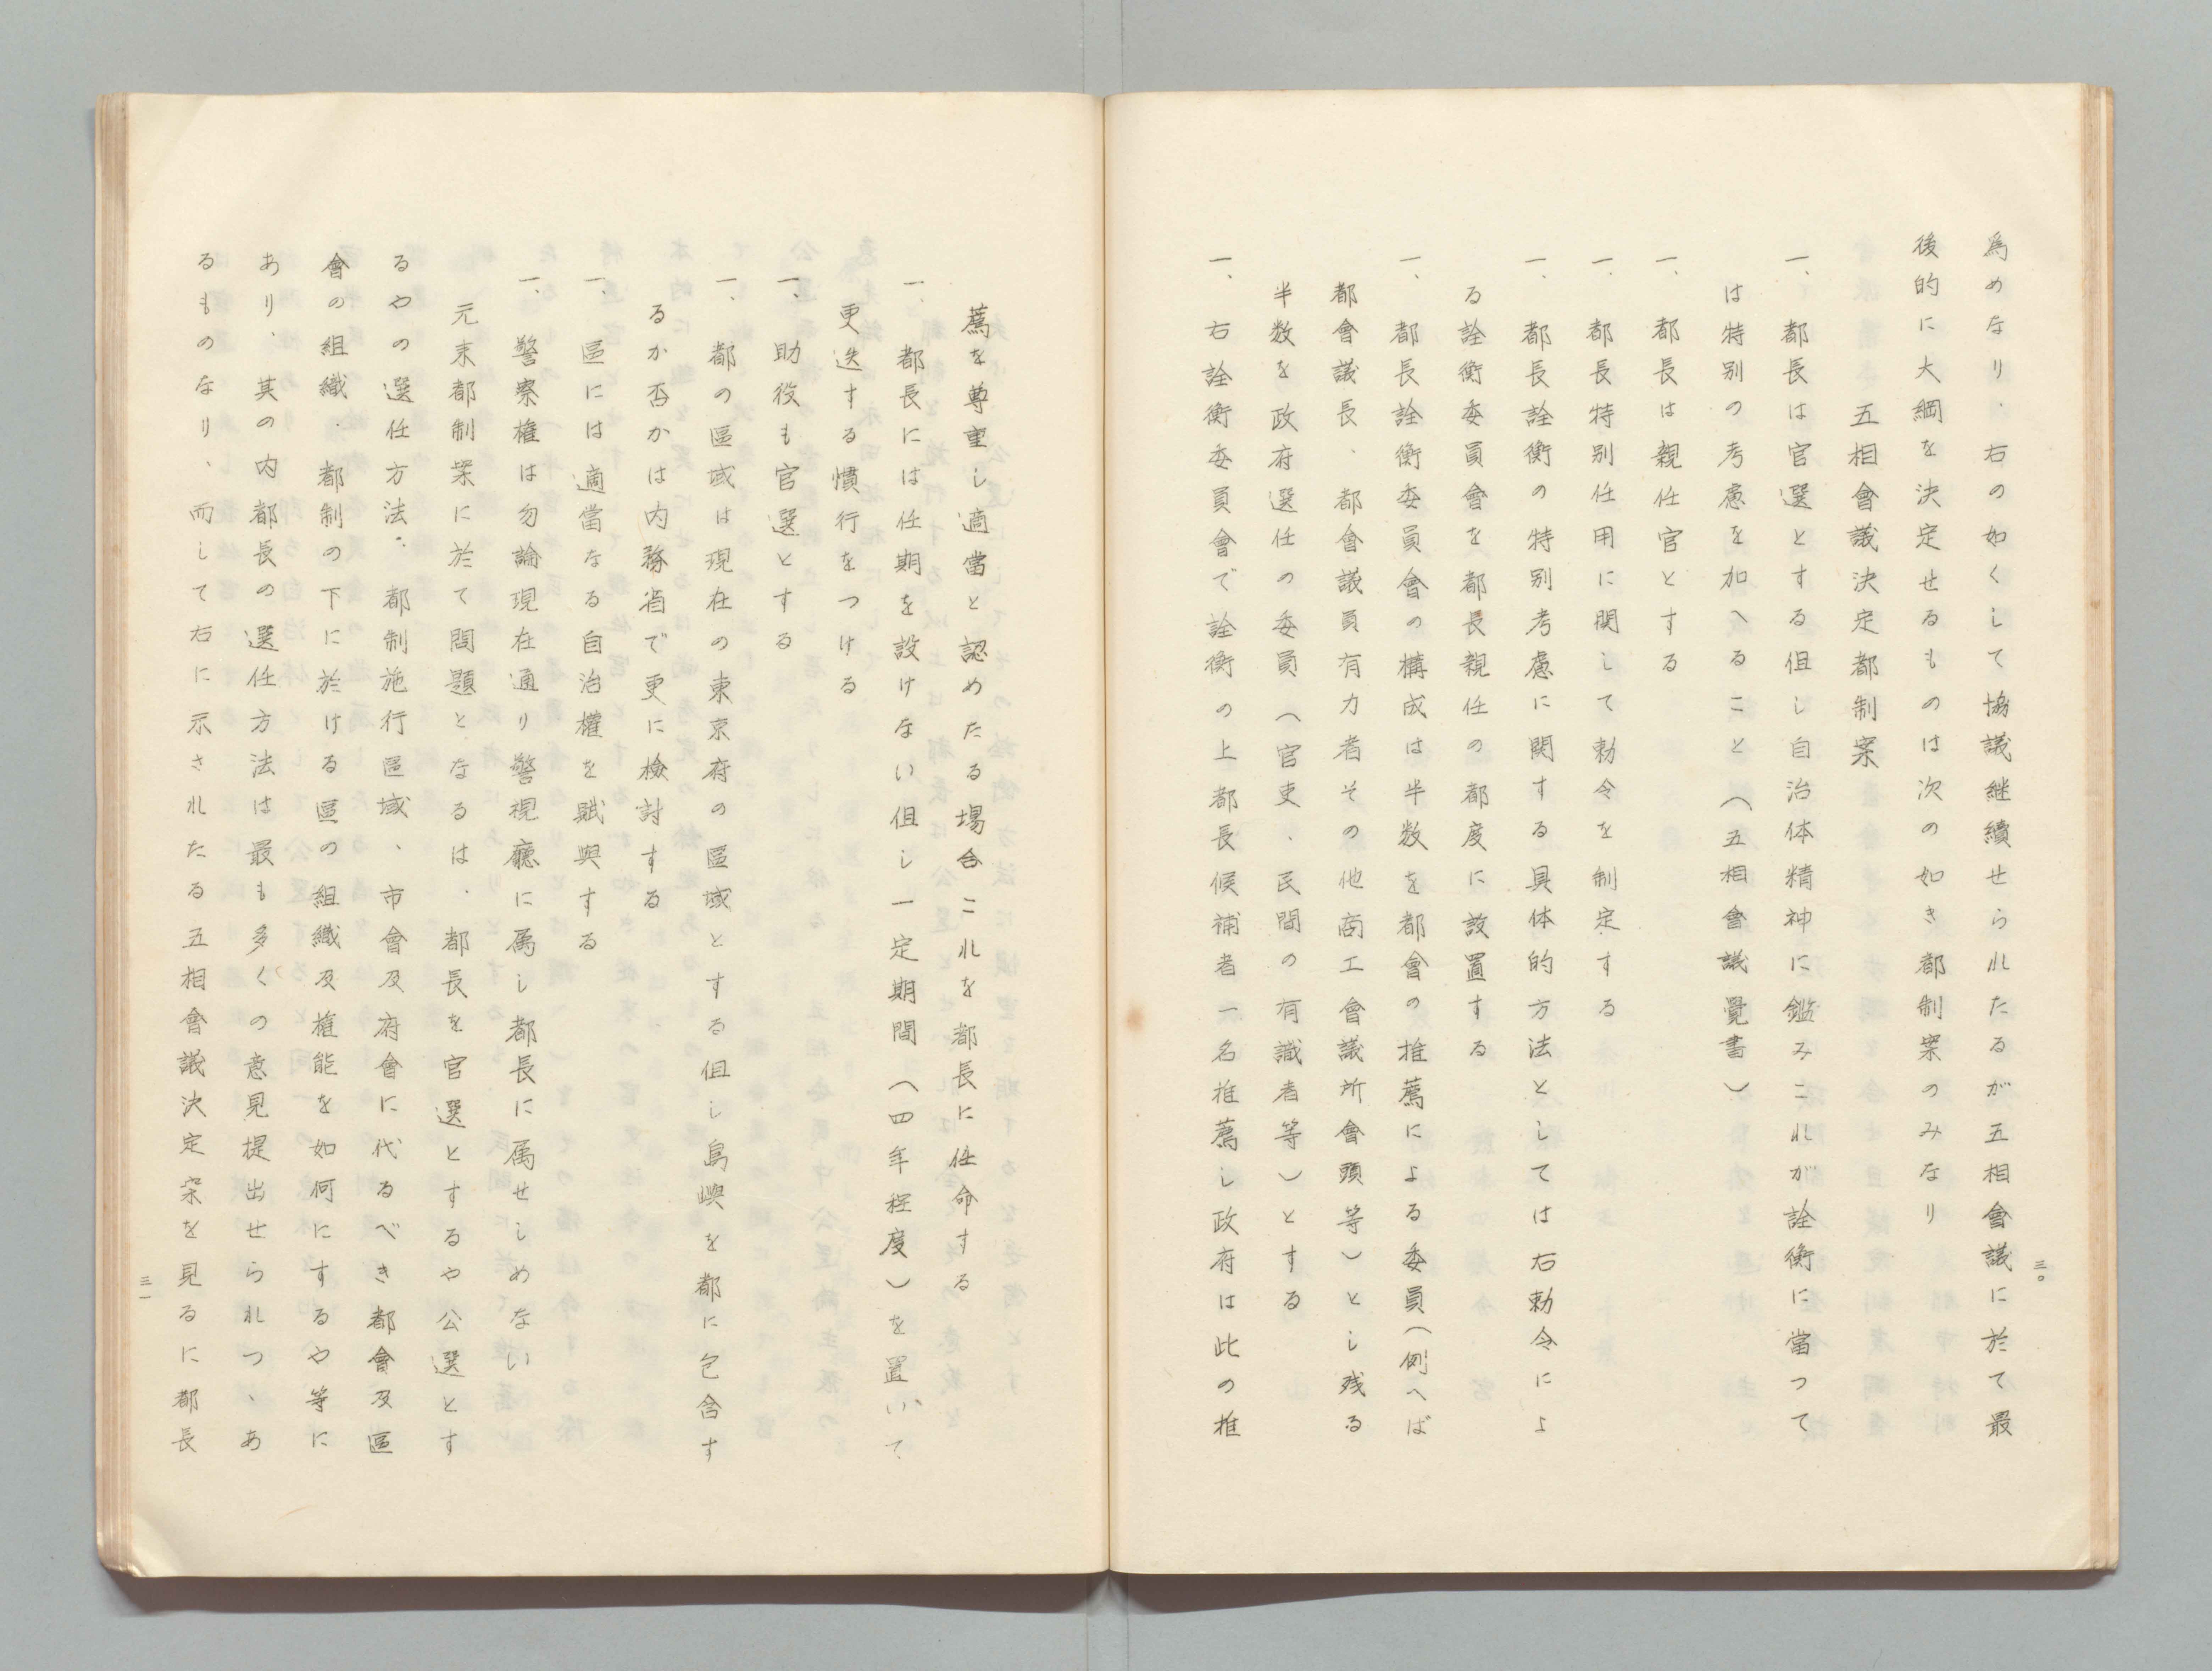 三〇
為めなり．右の如くして協議継續せられたるが五相會議に於て最
後的に大綱を決定せるものは次の如き都制案のみなり
五相會議決定都制案
一、都長は官選とする但し自治体精神に鑑みこれが詮衡に當つて
は特別の考慮を加へること（五相會議覺書）
一、都長は親任官とする
一、都長特別任用に関して勅令を制定する
一、都長詮衡の特別考慮に関する具体的方法としては右勅令によ
る詮衡委員會を都長親任の都度に設置する
一、都長詮衡委員會の構成は半数を都會の推薦による委員（例へば
都會議長、都會議員有力者その他商工會議所會頭等）とし残る
半数を政府選任の委員（官吏、民間の有識者等）とする
一、右詮衡委員會で詮衡の上都長候補者一名推薦し政府は此の推
薦を尊重し適當と認めたる場合これを都長に任命する
一、都長には任期を設けない但し一定期間（四年程度）を置いて
更迭する慣行をつける
一、助役も官選とする
一、都の區域は現在の東京府の區域とする但し島嶼を都に包含す
るか否かは内務省で更に檢討する
一、區には適當なる自治權を賦與する
一、警察権は勿論現在通り警視廳に属し都長に属せしめない
元来都制案に於て問題となるは．都長を官選とするや公選とす
るやの選任方法．都制施行區域、市會及府會に代るべき都會及區
會の組織．都制の下に於ける區の組織及権能を如何にするや等に
あり、其の内都長の選任方法は最も多くの意見提出せられつゝあ
るものなり、而して右に示されたる五相會議決定案を見るに都長
三一